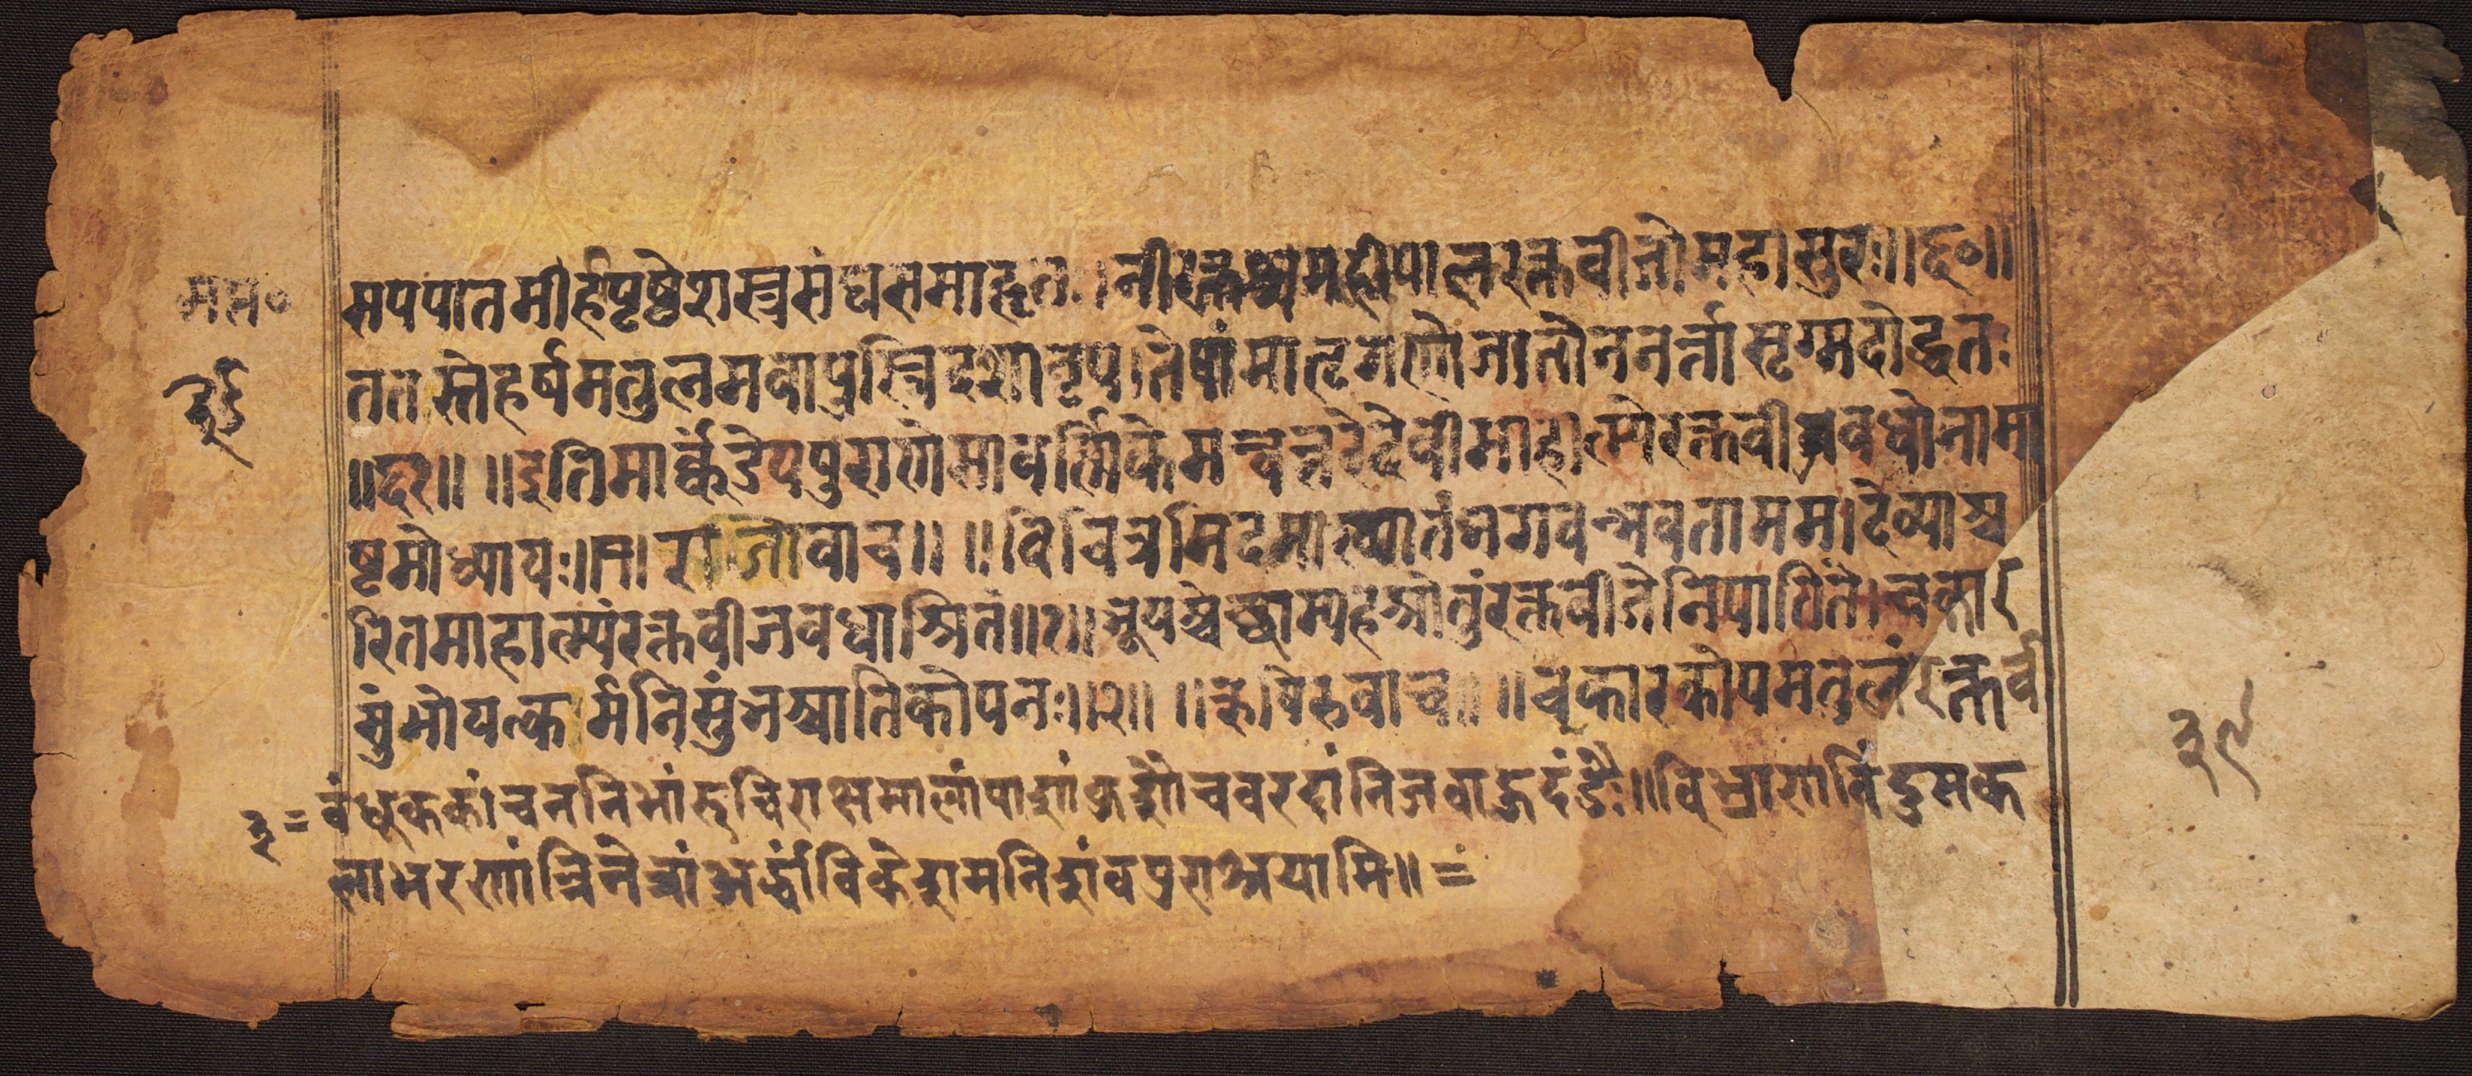 स पपात मीहपृष्ठे शस्त्रसंघसमाहतः । नीरक्तश्च महीपाल रक्तवीजो महासुरः ॥ ६० ॥
ततस्ते हर्षमतुलमवापुस्त्रिदशा नृप । तेषां मातृगणो जातो ननर्त्तासृग्मदोद्धतः
॥ ६१ ॥ ॥ इति मार्क्कंडेयपुराणे सावर्त्तिके मन्वन्तरे देवीमाहात्म्ये रक्तवीजवधो नामा
ष्टमोध्यायः ॥ ८ ॥ राजोवाच ॥ ॥ विचित्रमिदमाख्यातं भगवन्भवता मम । देव्याश्च
रितमाहात्म्यं रक्तवीजवधाश्रितं ॥ १ ॥ भूयश्चेच्छाम्यहं श्रोतुं रक्तवीजे निपातिते । चकार
सुंभो यत्कर्म निसुंभश्चातिकोपनः ॥ २ ॥ ॥ ऋषिरुवाच ॥ ॥ चकार कोपमतुलं रक्तवी
३ = वंधूककांचननिभां रुचिराक्षमालां पाशांकुशौ च वरदां निजवाहुदंडैः ॥ विभ्राणमिंदुसक
लाभरणां त्रिनेत्रां अर्द्धांविकेशमनिशं वपुराश्रयामि ॥ =
३९